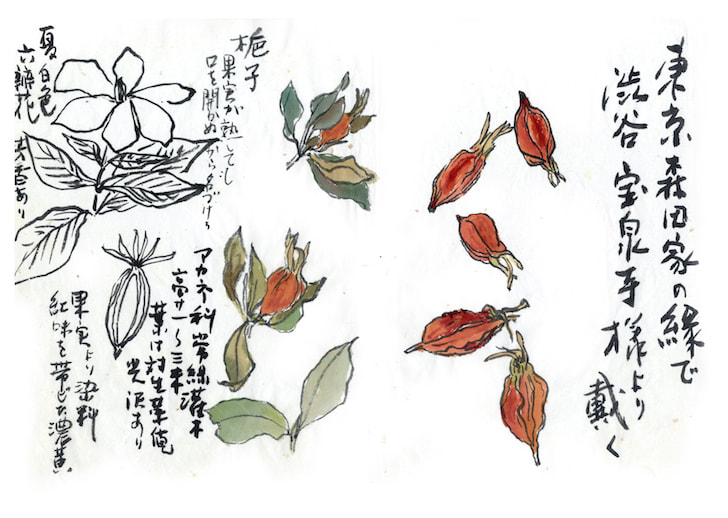 東京森田家の縁で
渋谷宝泉寺様より
戴く
梔子
果実が熟しても
口を開かぬから名づける
夏白色
六瓣花 芳香あり
アカネ科常緑灌木
高サ一〜三米
葉は対生革質
光沢あり
果実より染料
紅味を帯びた濃黄